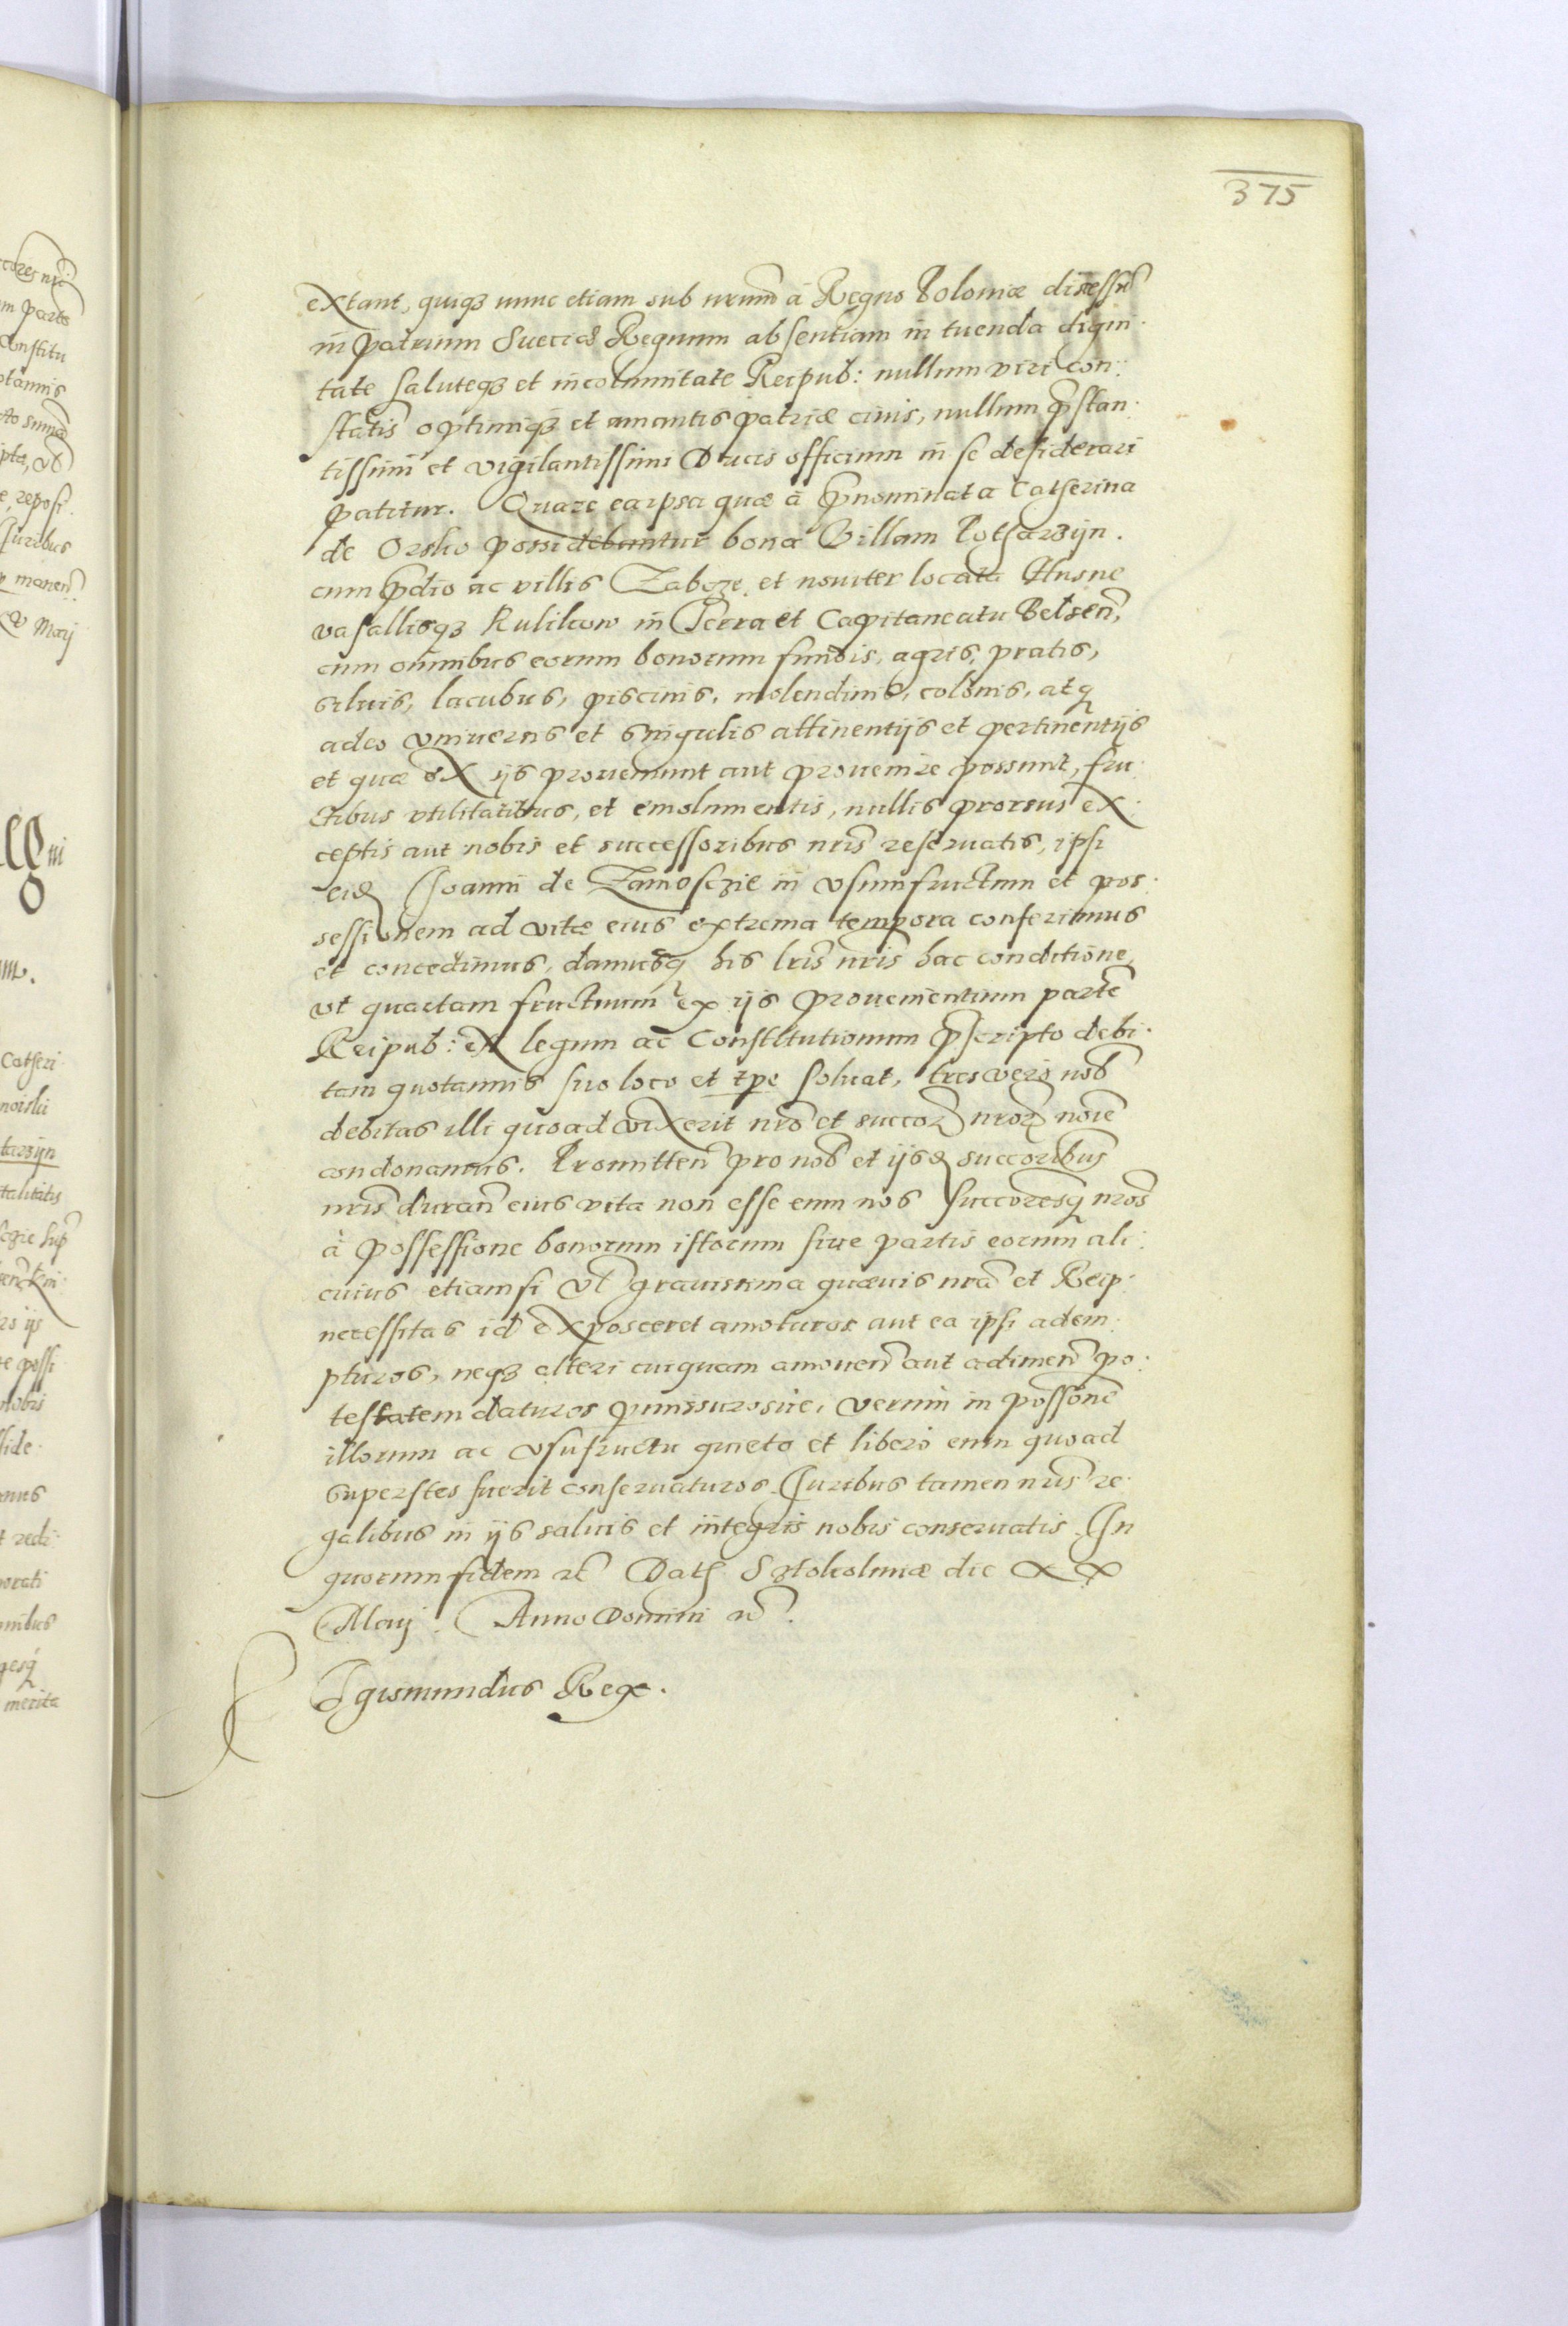 375
extant, quiqꝫ nunc etiam sub nrum à Regno Poloniæ discessũ
in patrium Sueciæ Regnum absentiam in tuenda digni
tate saluteqꝫ et incolumitate Reipub: nullum viri con
statis optimiqꝫ et amantis patriæ ciuis, nullum p̃stan
tissimi et vigilantissimi Ducis officium in se desiderari
patitur. Quare eaipsa quæ à p̃nominata Catherina
de Orsko possidebantur bona Villam Potharzijn.
cum p̃dio ac villis Zaboze, et nouiter locata Husne
vasallisqꝫ Kulikow in Terra et Capitaneatu Belseñ,
cum omnibus eorum bonorum fundis, agris, pratis,
siluis, lacubus, piscinis, molendinis, colonis, atqꝫ
adeo vniuersis et singulis attinentijs et pertinentijs
et quæ ex ijs proueniunt aut prouenire possunt, fru
ctibus vtilitatibus, et emolumentis, nullis prorsus ex
ceptis aut nobis et successoribus nris reseruatis, ipsi
eidẽ Joanni de Zamosczie in vsumfructum et pos
sessionem ad vitæ eius extrema tempora conferimus
et concedimus, damusqꝫ his lris nris hac conditione,
vt quartam fructuum ex ijs prouenientium partẽ
Reipub: ex legum ac Constitutionum p̃scripto debi
tam quotannis suo loco et tpe soluat, tres vero nob̃
debitas illi quoad vixerit nro et succoꝝ nroꝝ noĩe
condonamus. Promitteñ pro nob̃ et ijsdẽ succoribus
nris durañ eius vita non esse eum nos succoresqꝫ nros
à possessione bonorum istorum siue partis eorum ali
cuius etiamsi vl grauissima quæuis nra et Reip:
necessitas id exposceret amoturos aut ea ipsi adem
pturos, neqꝫ alteri cuiquam amoueñ aut adimeñ po
testatem daturos p̱missurosue, verum in possonẽ
illorum ac vsufructu quieto et libero eum quoad
superstes fuerit conseruaturos. Juribus tamen nris re
galibus in ijs saluis et integris nobis conseruatis. In
quorum fidem etc̃ Datʒ Sztokolmiæ die XX
Maij. Anno Domini etc̃.
Sigismundus Rex.